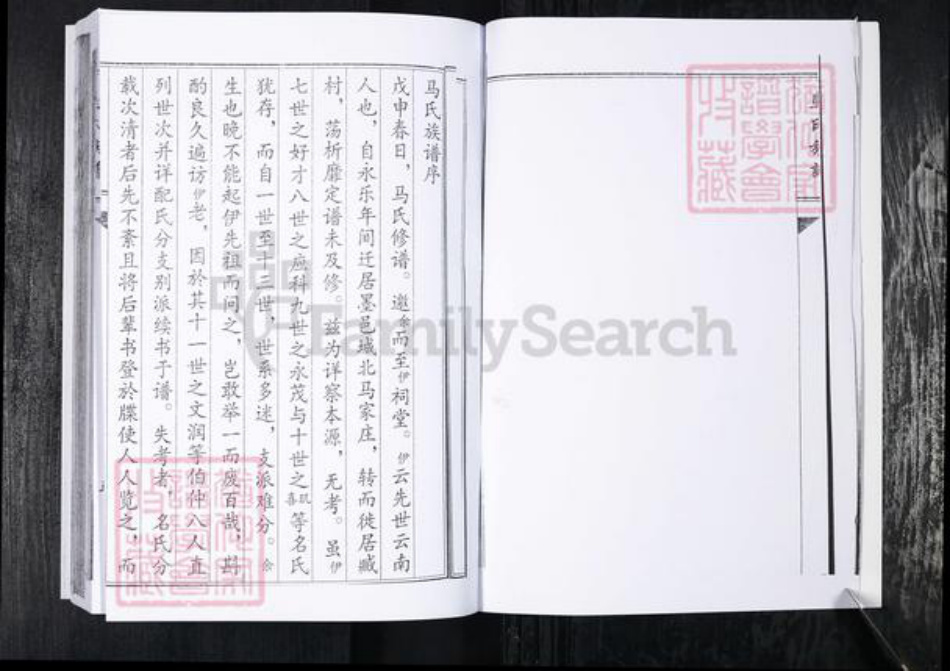 马氏族谱序
戊申春日，马氏修谱。邀余而至伊祠堂。伊云先世云南
人也，自永乐年间迁居墨邑城北马家庄，转而徙居臧
村，荡析靡定谱未及修。兹为详察本源，无考。虽伊
七世之好才八世之应科九世之永茂与十世之玑喜等名氏
犹存，而自一世至十三世，世系多迷，支派难分。余
生也晚不能起伊先祖而问之，岂敢举一而废百哉，斟
酌良久遍访伊老，因於其十一世之文润等伯仲八人直
列世次并详配氏分支别派续书于谱。失考者，名氏分
载次清者后先不紊且将后辈书登於牒使人人览之，而
FamilySearch